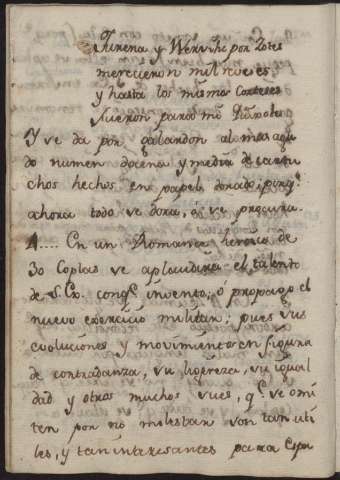 Turena y Wervihc por Zotes
merecieron mil reveses
y hasta los mismos Corteses
fueron para mó
Y se da por galardon al mas agu
do numen docena y media de cartu
chos hechos en papel dorado; porqe.
ahora todo se dora, ò se procura.
4.... En un Romance heroico de
30 Coplas se aplaudira el talento
de S. Ex. con qe. inventó, ó propuso el
nuevo exercicio militar; pues sus
evoluciones y movimientos en figura
de contradanza, su ligereza, su igual
dad y otros muchos usos, qe. se omi
ten por no molestar son tan uti
les, y tan interesantes para Espa